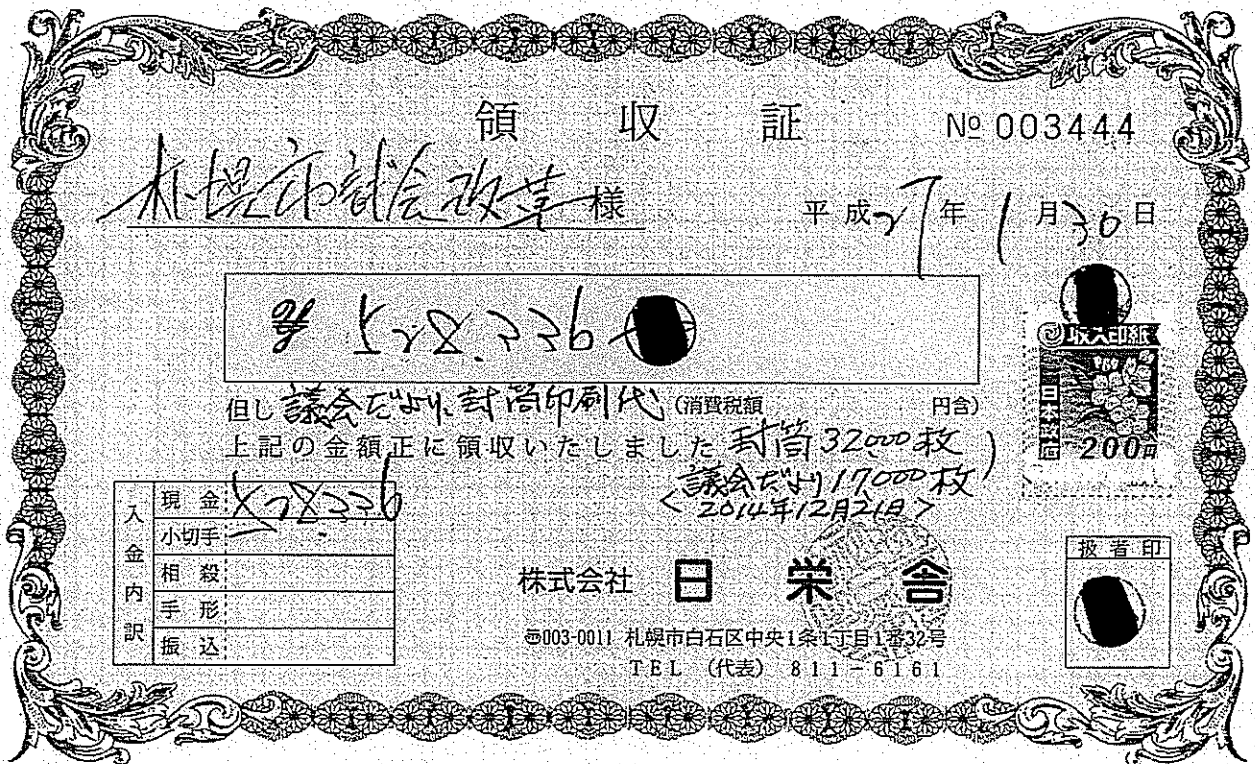 領収証
№ 003444
札幌市議会改革 様
平成27年1月30日
528,336
但し 議会だより、封筒印刷代 (消費税額 円含)
上記の金額正に領収いたしました 封筒32,000枚
議会だより17,000枚)
<2014年12月21日>
収入印紙
日本政府
200円
入金内訳
現金 528,336
小切手
相殺
手形
振込
株式会社 日栄舎
〒003-0011 札幌市白石区中央1条1丁目1番32号
TEL (代表) 811-6161
扱者印